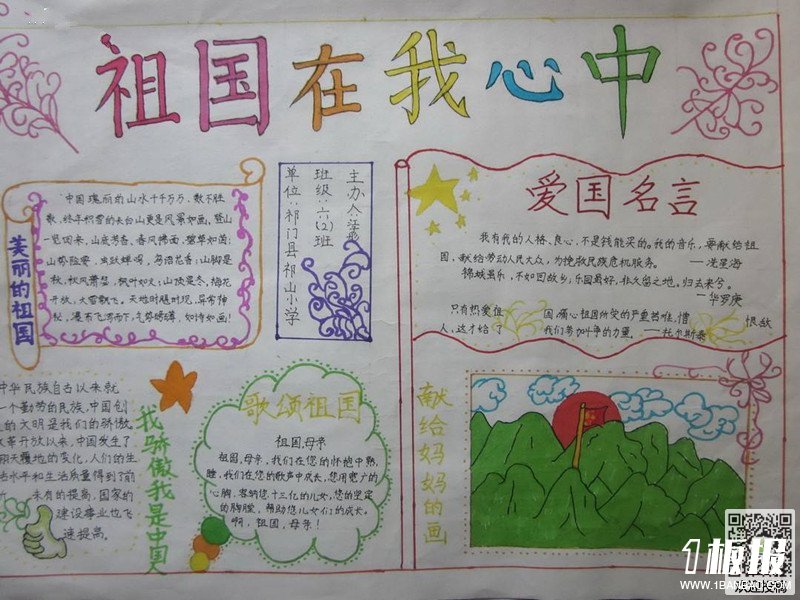 祖国在我心中
美丽的祖国
中国瑰丽的山水千千万万、数不胜
数,终年积雪的长白山更是风景如画,登山
一览四来,山底芳香,春风拂面,碧草如茵;
山势险要,虫跃蝉鸣,鸟语花香;山脚是
秋,秋风萧瑟,枫叶如火;山顶是冬,梅花
开放,大雪飘飞。天地时随时现,异常神
秘,瀑布飞泻而下,气势磅礴,如诗如画!
主办人:
班级:六(2)班
单位:祁门县祁山小学
爱国名言
我有我的人格、良心,不是钱能买的。我的音乐,要献给祖
国,献给劳动人民大众,为挽救民族危机服务。 ——冼星海
锦城虽乐,不如回故乡;乐园虽好,非久留之地。归去来兮。
——华罗庚
只有热爱祖国,痛心祖国所受的严重苦难,憎恨敌
人,这才给了我们参加斗争的力量。——托尔斯泰
中华民族自古以来就
一个勤劳的民族,中国创
的文明是我们的骄傲
改革开放以来,中国发生了
翻天覆地的变化,人们的生
活水平和生活质量得到了前
所未有的提高,国家的
建设事业也飞
速提高。
我骄傲我是中国人
歌颂祖国
祖国,母亲
祖国,母亲,我们在您的怀抱中熟
睡,我们在您的歌声中成长,您用宽广的
心胸,容纳您十三亿的儿女,您的坚定
的胸膛,帮助您儿女们的成长。
啊,祖国,母亲!
献给妈妈的画
1板报
WWW.1BANBAO.COM
欢迎投稿